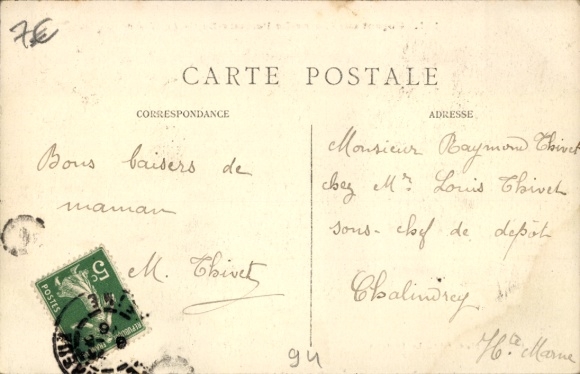 7€
CARTE POSTALE
CORRESPONDANCE
ADRESSE
Bons baisers de
maman
M. Thivet
Monsieur Raymond Thivet
chez Mr Louis Thivet
sous-chef de depôt
Chalindrey
Hte Marne
5c
POSTES
94